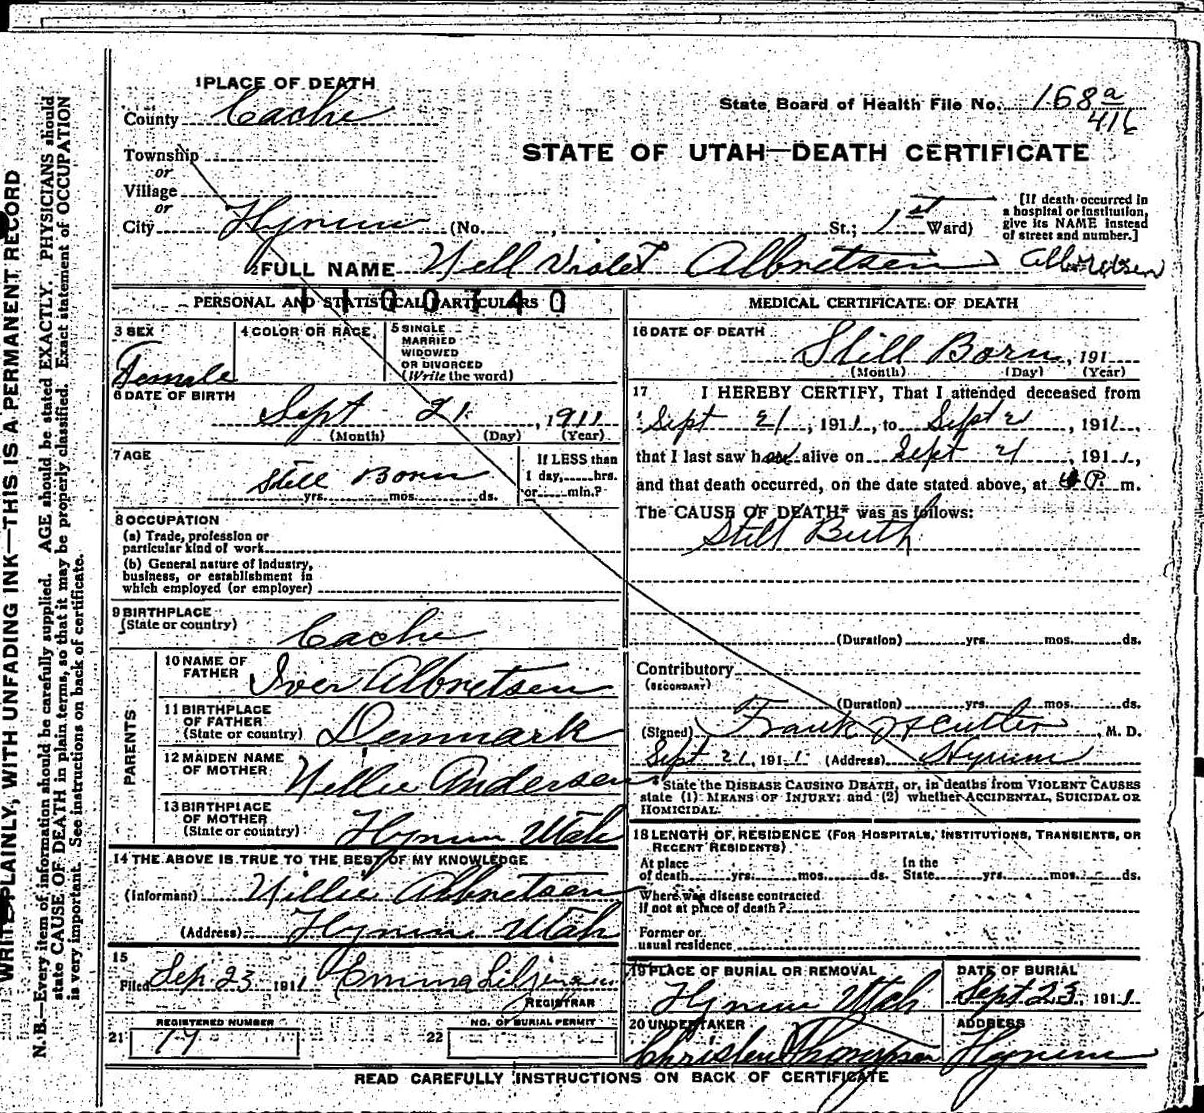 1 PLACE OF DEATH
County Cache
State Board of Health File No. 168 a
416
Township
or
Village
or
STATE OF UTAH—DEATH CERTIFICATE
City Hyrum (No. , St.; 1st Ward)
[If death occurred in
a hospital or institution,
give its NAME instead
of street and number.]
2 FULL NAME Nell Violet Albretsen Albretsen
PERSONAL AND STATISTICAL PARTICULARS
1100740
3 SEX
Female
4 COLOR OR RACE
5 SINGLE
MARRIED
WIDOWED
OR DIVORCED
(Write the word)
6 DATE OF BIRTH
Sept 21, 1911
(Month) (Day) (Year)
7 AGE
Still Born
yrs. mos. ds.
If LESS than
1 day, hrs.
or min.?
8 OCCUPATION
(a) Trade, profession or
particular kind of work
(b) General nature of industry,
business, or establishment in
which employed (or employer)
9 BIRTHPLACE
(State or country)
Cache
PARENTS
10 NAME OF
FATHER
Iver Albretsen
11 BIRTHPLACE
OF FATHER
(State or country)
Denmark
12 MAIDEN NAME
OF MOTHER
Nellie Andersen
13 BIRTHPLACE
OF MOTHER
(State or country)
Hyrum Utah
14 THE ABOVE IS TRUE TO THE BEST OF MY KNOWLEDGE
(Informant) Nillie Albretsen
(Address) Hyrum Utah
15
Filed Sep 23 1911 Emma
REGISTRAR
REGISTERED NUMBER
21
NO. OF BURIAL PERMIT
22
MEDICAL CERTIFICATE OF DEATH
16 DATE OF DEATH
Still Born, 191
(Month) (Day) (Year)
17 I HEREBY CERTIFY, That I attended deceased from
Sept 21, 1911, to Sept 21, 1911,
that I last saw h alive on Sept 21, 1911,
and that death occurred, on the date stated above, at P. m.
The CAUSE OF DEATH* was as follows:
Still Birth
(Duration) yrs. mos. ds.
Contributory
(SECONDARY)
(Duration) yrs. mos. ds.
(Signed) Frank , M. D.
Sept 21, 1911 (Address) Hyrum
*State the DISEASE CAUSING DEATH, or, in deaths from VIOLENT CAUSES
state (1) MEANS OF INJURY; and (2) whether ACCIDENTAL, SUICIDAL OR
HOMICIDAL.
18 LENGTH OF RESIDENCE (FOR HOSPITALS, INSTITUTIONS, TRANSIENTS, OR
RECENT RESIDENTS)
At place
of death yrs. mos. ds.
In the
State yrs. mos. ds.
Where was disease contracted
If not at place of death?
Former or
usual residence
19 PLACE OF BURIAL OR REMOVAL
Hyrum Utah
DATE OF BURIAL
Sept 23, 1911
20 UNDERTAKER
ADDRESS
Hyrum
READ CAREFULLY INSTRUCTIONS ON BACK OF CERTIFICATE
WRITE PLAINLY, WITH UNFADING INK—THIS IS A PERMANENT RECORD
N. B.—Every item of information should be carefully supplied. AGE should be stated EXACTLY. PHYSICIANS should
state CAUSE OF DEATH in plain terms, so that it may be properly classified. Exact statement of OCCUPATION
is very important. See instructions on back of certificate.